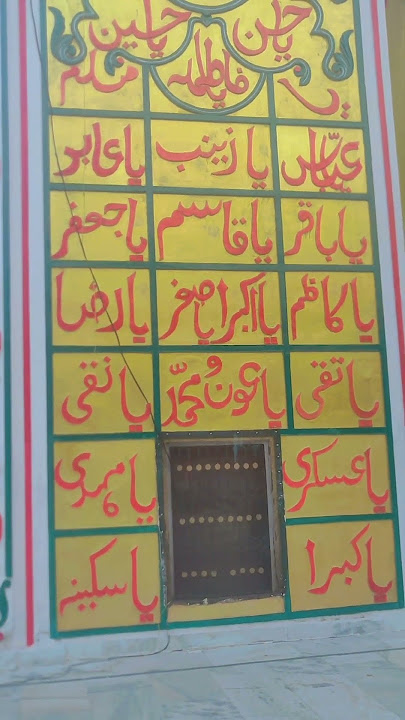 یا حسن یا حسین
یا فاطمہ مسلم
عبّاس یا زینب یا عابد
یا باقر یا قاسم یا جعفر
یا کاظم یا اکبر یا اصغر یا رضا
یا تقی یا عون و محمّد یا نقی
یا عسکری یا مہدی
یا کبرا یا سکینہ